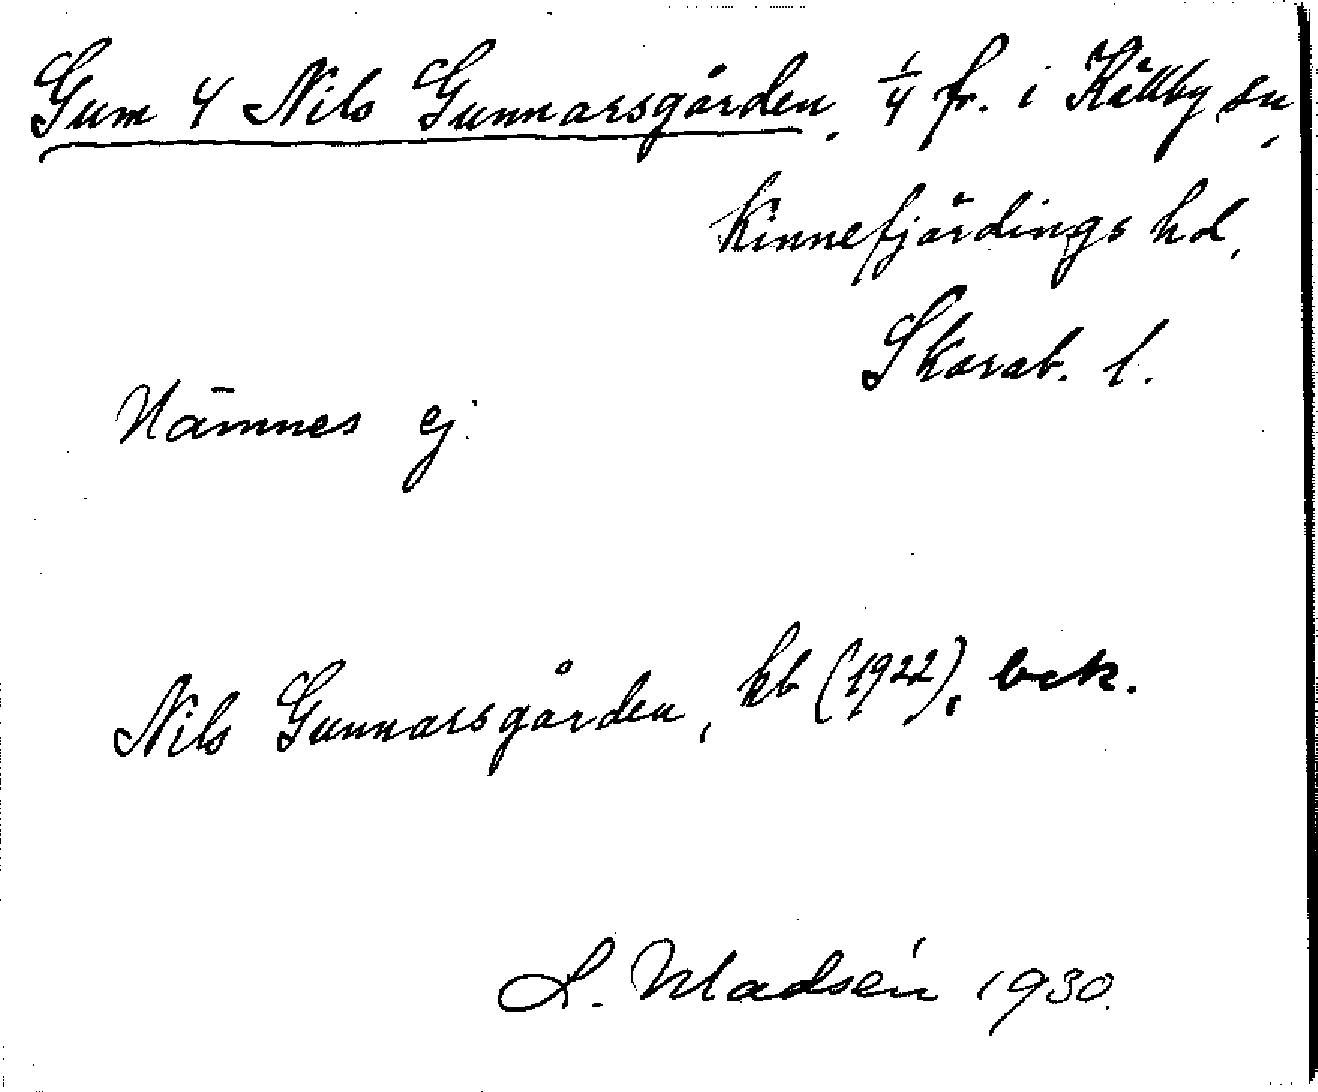 Gum 4 Nils Gunnarsgården, 1/4 fr. i Källby sn,
Kinnefjärdings hd,
Skarab. l.
Nämnes ej.
Nils Gunnarsgården, kb (1922), bek.
L. Madsén 1930.